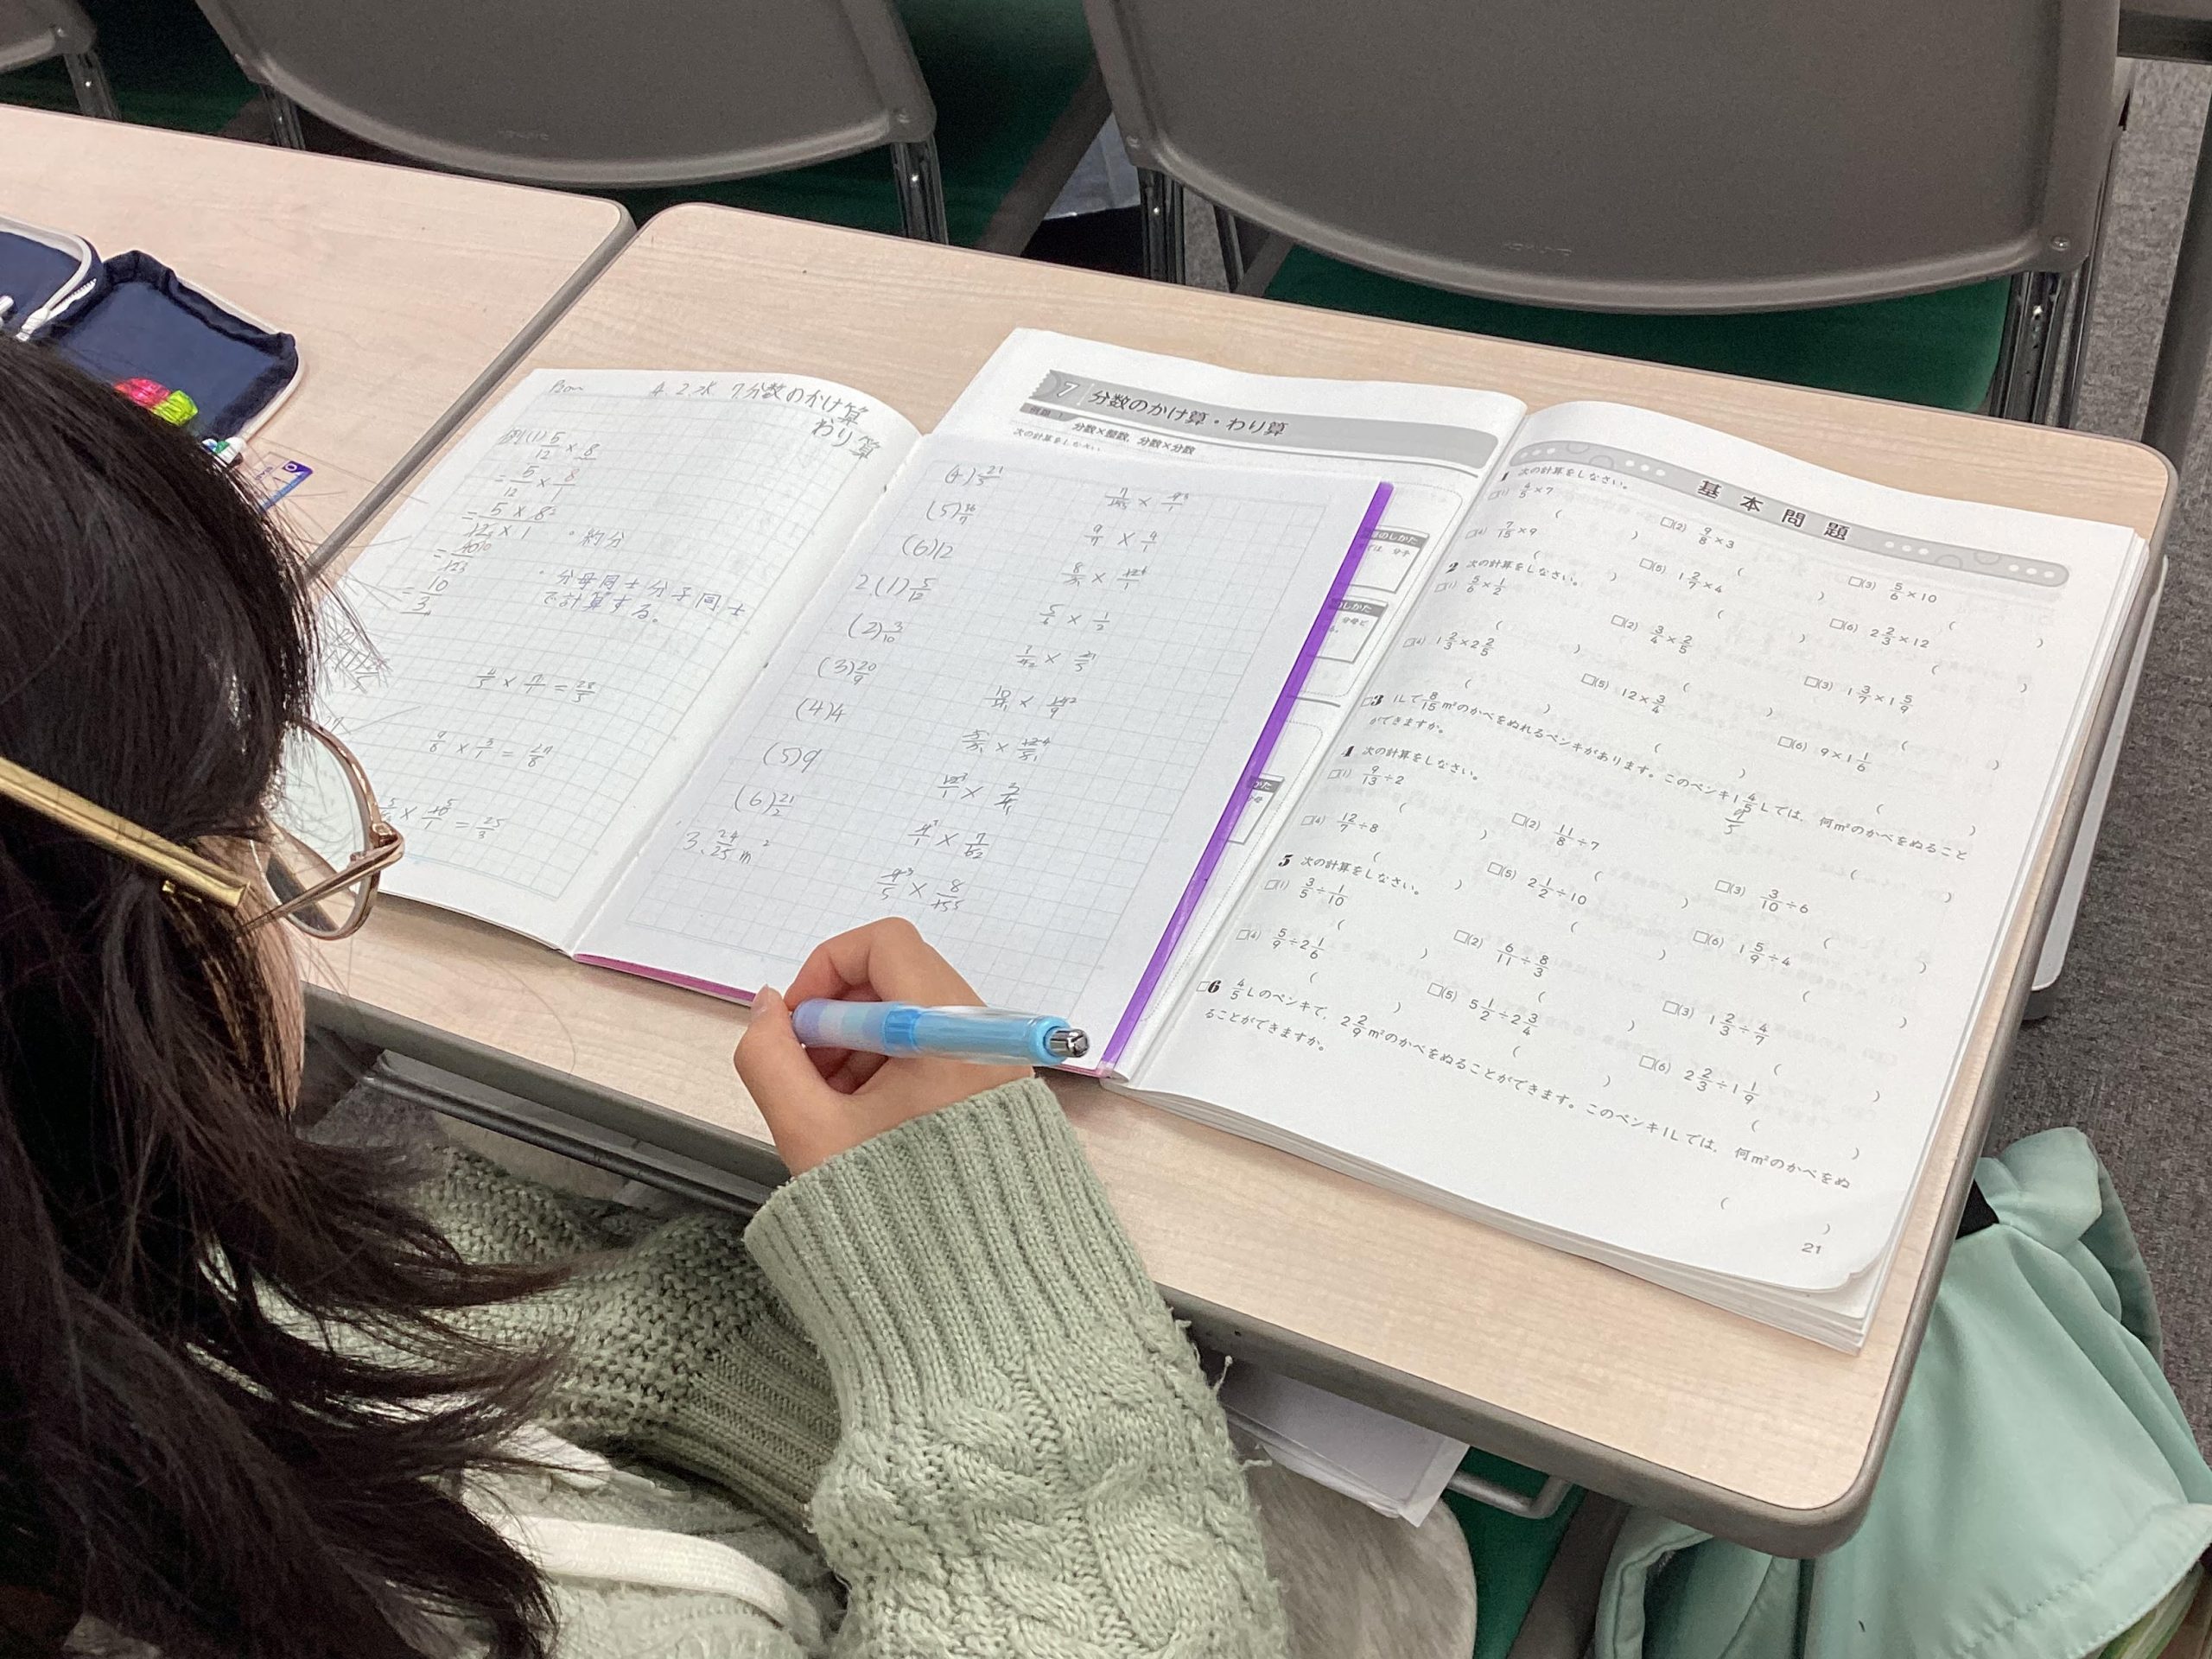 4.2水 7分数のかけ算
わり算
例(1) 5/12 × 8
= 5/12 × 8/1
= 5 × 8/12 × 1 ・約分
・分母同士分子同士
で計算する。
= 10/3
4/5 × 7/1 = 28/5
(4) 21/5
(5) 36/7
(6) 12
2 (1) 5/12
(2) 3/10
(3) 20/9
(4) 4
(5) 9
(6) 21/2
3. 24/25 m²
7 分数のかけ算・わり算
例題 1 分数×整数，分数×分数
次の計算をしなさい。
基本問題
1 次の計算をしなさい。
□(1) 4/5×7 □(2) 9/8×3 □(3) 5/6×10
□(4) 7/15×9 □(5) 1 2/7×4 □(6) 2 2/3×12
2 次の計算をしなさい。
□(1) 5/6×1/2 □(2) 3/4×2/5 □(3) 1 3/7×1 5/9
□(4) 1 2/3×2 2/5 □(5) 12×3/4 □(6) 9×1 1/6
□3 1Lで8/15m²のかべをぬれるペンキがあります。このペンキ1 4/5Lでは，何m²のかべをぬること
ができますか。
9/5
4 次の計算をしなさい。
□(1) 9/13÷2 □(2) 11/8÷7 □(3) 3/10÷6
□(4) 12/7÷8 □(5) 2 1/2÷10 □(6) 1 5/9÷4
5 次の計算をしなさい。
□(1) 3/5÷1/10 □(2) 6/11÷8/3 □(3) 1 2/3÷4/7
□(4) 5/9÷2 1/6 □(5) 5 1/2÷2 3/4 □(6) 2 2/3÷1 1/9
□6 4/5Lのペンキで，2 2/9m²のかべをぬることができます。このペンキ1Lでは，何m²のかべをぬ
ることができますか。
21